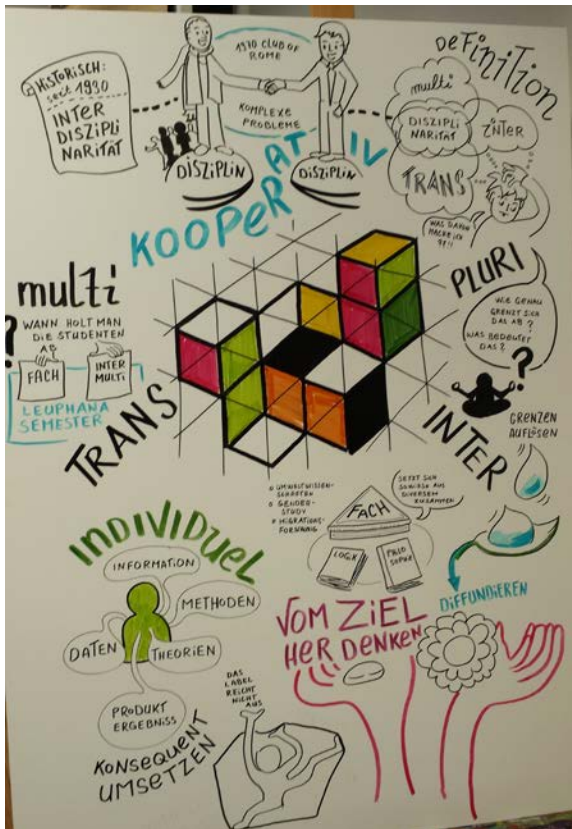 HISTORISCH:
seit 1930
INTER
DISZIPLI
NARITÄT
1970 CLUB OF
ROME
KOMPLEXE
PROBLEME
DISZIPLIN
DISZIPLIN
KOOPERATIV
DEFINITION
multi
DISZIPLI
NARITÄT
INTER
TRANS
WAS DAVON
MACHE ICH
multi
?
WANN HOLT MAN
DIE STUDENTEN
AB
FACH
INTER
MULTI
LEUPHANA
SEMESTER
TRANS
PLURI
WIE GENAU
GRENZT SICH
DAS AB?
WAS BEDEUTET
DAS?
?
INTER
GRENZEN
AUFLÖSEN
UMWELTWISSEN-
SCHAFTEN
GENDER-
STUDY
MIGRATIONS-
FORSCHUNG
FACH
SETZT SICH
SOWIESO AUS
DIVERSEM
ZUSAMMEN
LOGIK
PHILO
SOPHIE
DIFFUNDIEREN
INDIVIDUEL
INFORMATION
METHODEN
DATEN
THEORIEN
PRODUKT
ERGEBNISS
KONSEQUENT
UMSETZEN
DAS
LABEL
REICHT
NICHT
AUS
VOM ZIEL
HER DENKEN